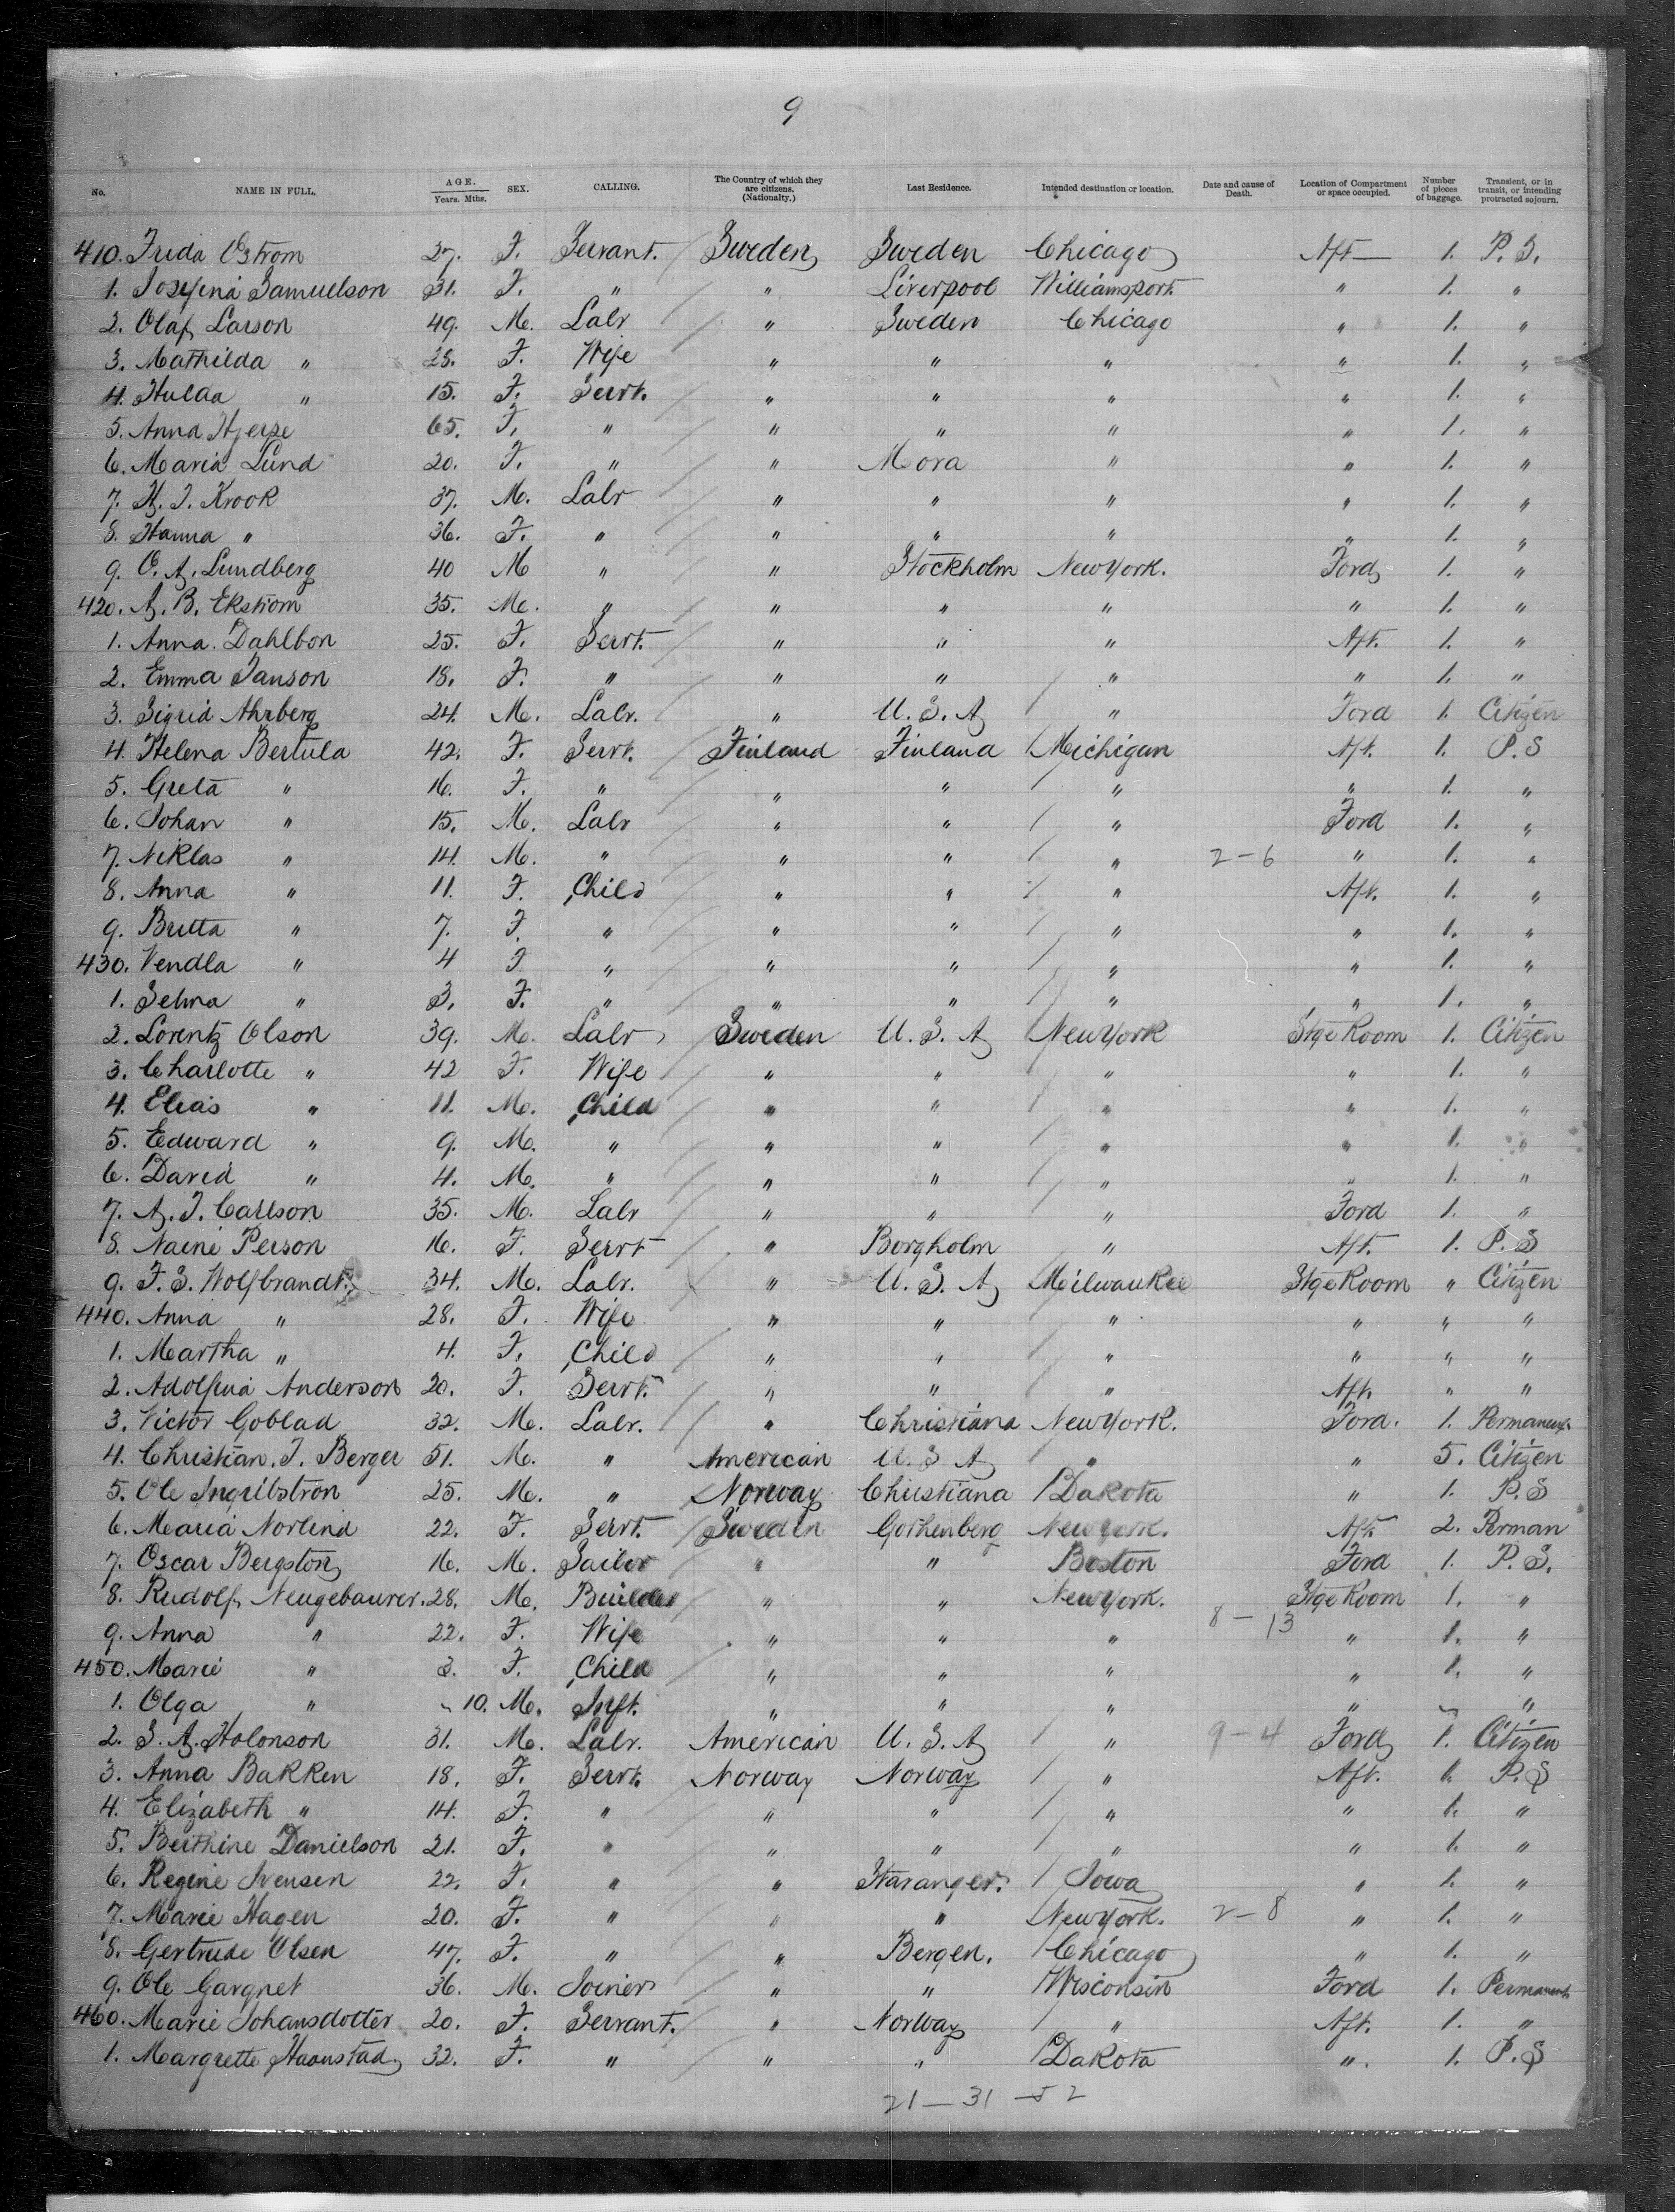 9
No. NAME IN FULL. AGE. Years. Mths. SEX. CALLING. The Country of which they are citizens. (Nationalty.) Last Residence. Intended destination or location. Date and cause of Death. Location of Compartment or space occupied. Number of pieces of baggage. Transient, or in transit, or intending protracted sojourn.
410. Frida Ostrom 27. F. Servant. Sweden Sweden Chicago Aft 1. P. S.
1. Josefina Samuelson 31. F. " " Liverpool Williamsport " 1. "
2. Olaf Larson 49. M. Labr " Sweden Chicago " 1. "
3. Mathilda " 28. F. Wife " " " " 1. "
4. Hulda " 15. F. Servt. " " " " 1. "
5. Anna Hjerpe 65. F. " " " " " 1. "
6. Maria Lund 20. F. " " Mora " " 1. "
7. A. J. Krook 37. M. Labr " " " " 1. "
8. Hanna " 36. F. " " " " " 1. "
9. O. A. Lundberg 40 M " " Stockholm New York. Ford 1. "
420. A. B. Ekstrom 35. M. " " " " " 1. "
1. Anna. Dahlbon 25. F. Servt. " " " Aft. 1. "
2. Emma Janson 18. F. " " " " " 1. "
3. Sigrid Ahrberg 24. M. Labr. " U. S. A " Ford 1. Citizen
4. Helena Bertula 42. F. Servt. Finland Finland Michigan Aft. 1. P. S
5. Greta " 16. F. " " " " " 1. "
6. Johan " 15. M. Labr " " " Ford 1. "
7. Niklas " 14. M. " " " " 2-6 " 1. "
8. Anna " 11. F. Child " " " Aft. 1. "
9. Britta " 7. F. " " " " " 1. "
430. Vendla " 4 F " " " " " 1. "
1. Selma " 3. F. " " " " " 1. "
2. Lorentz Olson 39. M. Labr Sweden U. S. A New York Stge Room 1. Citizen
3. Charlotte " 42 F. Wife " " " " 1. "
4. Elias " 11. M. Child " " " " 1. "
5. Edward " 9. M. " " " " " 1. "
6. David " 4. M. " " " " " 1. "
7. A. J. Carlson 35. M. Labr " " " Ford 1. "
8. Naini Person 16. F. Servt " Borgholm " Aft. 1. P. S
9. F. S. Wolfbrandt. 34. M. Labr. " U. S. A Milwaukee Stge Room " Citizen
440. Anna " 28. F. Wife " " " " " "
1. Martha " 4. F. Child " " " " " "
2. Adolfina Anderson 20. F. Servt. " " " Aft. " "
3. Victor Goblad 32. M. Labr. " Christiana New York. Ford. 1. Permanent
4. Christian. J. Berger 51. M. " American U. S A " " 5. Citizen
5. Ole Ingribstron 25. M. " Norway Christiana Dakota " 1. P. S
6. Maria Norlind 22. F. Servt. Sweden Gothenberg New York. Aft 2. Perman
7. Oscar Bergston 16. M. Sailor " " Boston Ford 1. P. S.
8. Rudolf Neugebaurer. 28. M. Builder " " New York. Stge Room 1. "
9. Anna " 22. F. Wife " " " 8-13 " 1. "
450. Marie " 3. F. Child " " " " 1. "
1. Olga " - 10. M. Inft. " " " " - "
2. S. A. Holonson 31. M. Labr. American U. S. A " 9-4 Ford 1. Citizen
3. Anna Bakken 18. F. Servt. Norway Norway " Aft. 1. P. S
4. Elizabeth " 14. F. " " " " " 1. "
5. Berthine Danielson 21. F. " " " " " 1. "
6. Regine Svensen 22. F. " " Stavanger. Iowa " 1. "
7. Marie Hagen 20. F. " " " New York. 2-8 " 1. "
8. Gertrude Olsen 47. F. " " Bergen. Chicago " 1. "
9. Ole Gargnet 36. M. Joiner " " Wisconsin Ford 1. Permanent
460. Marie Johansdotter 20. F. Servant. " Norway " Aft. 1. "
1. Margrette Haanstad 32. F. " " " Dakota ". 1. P. S
21-31-52